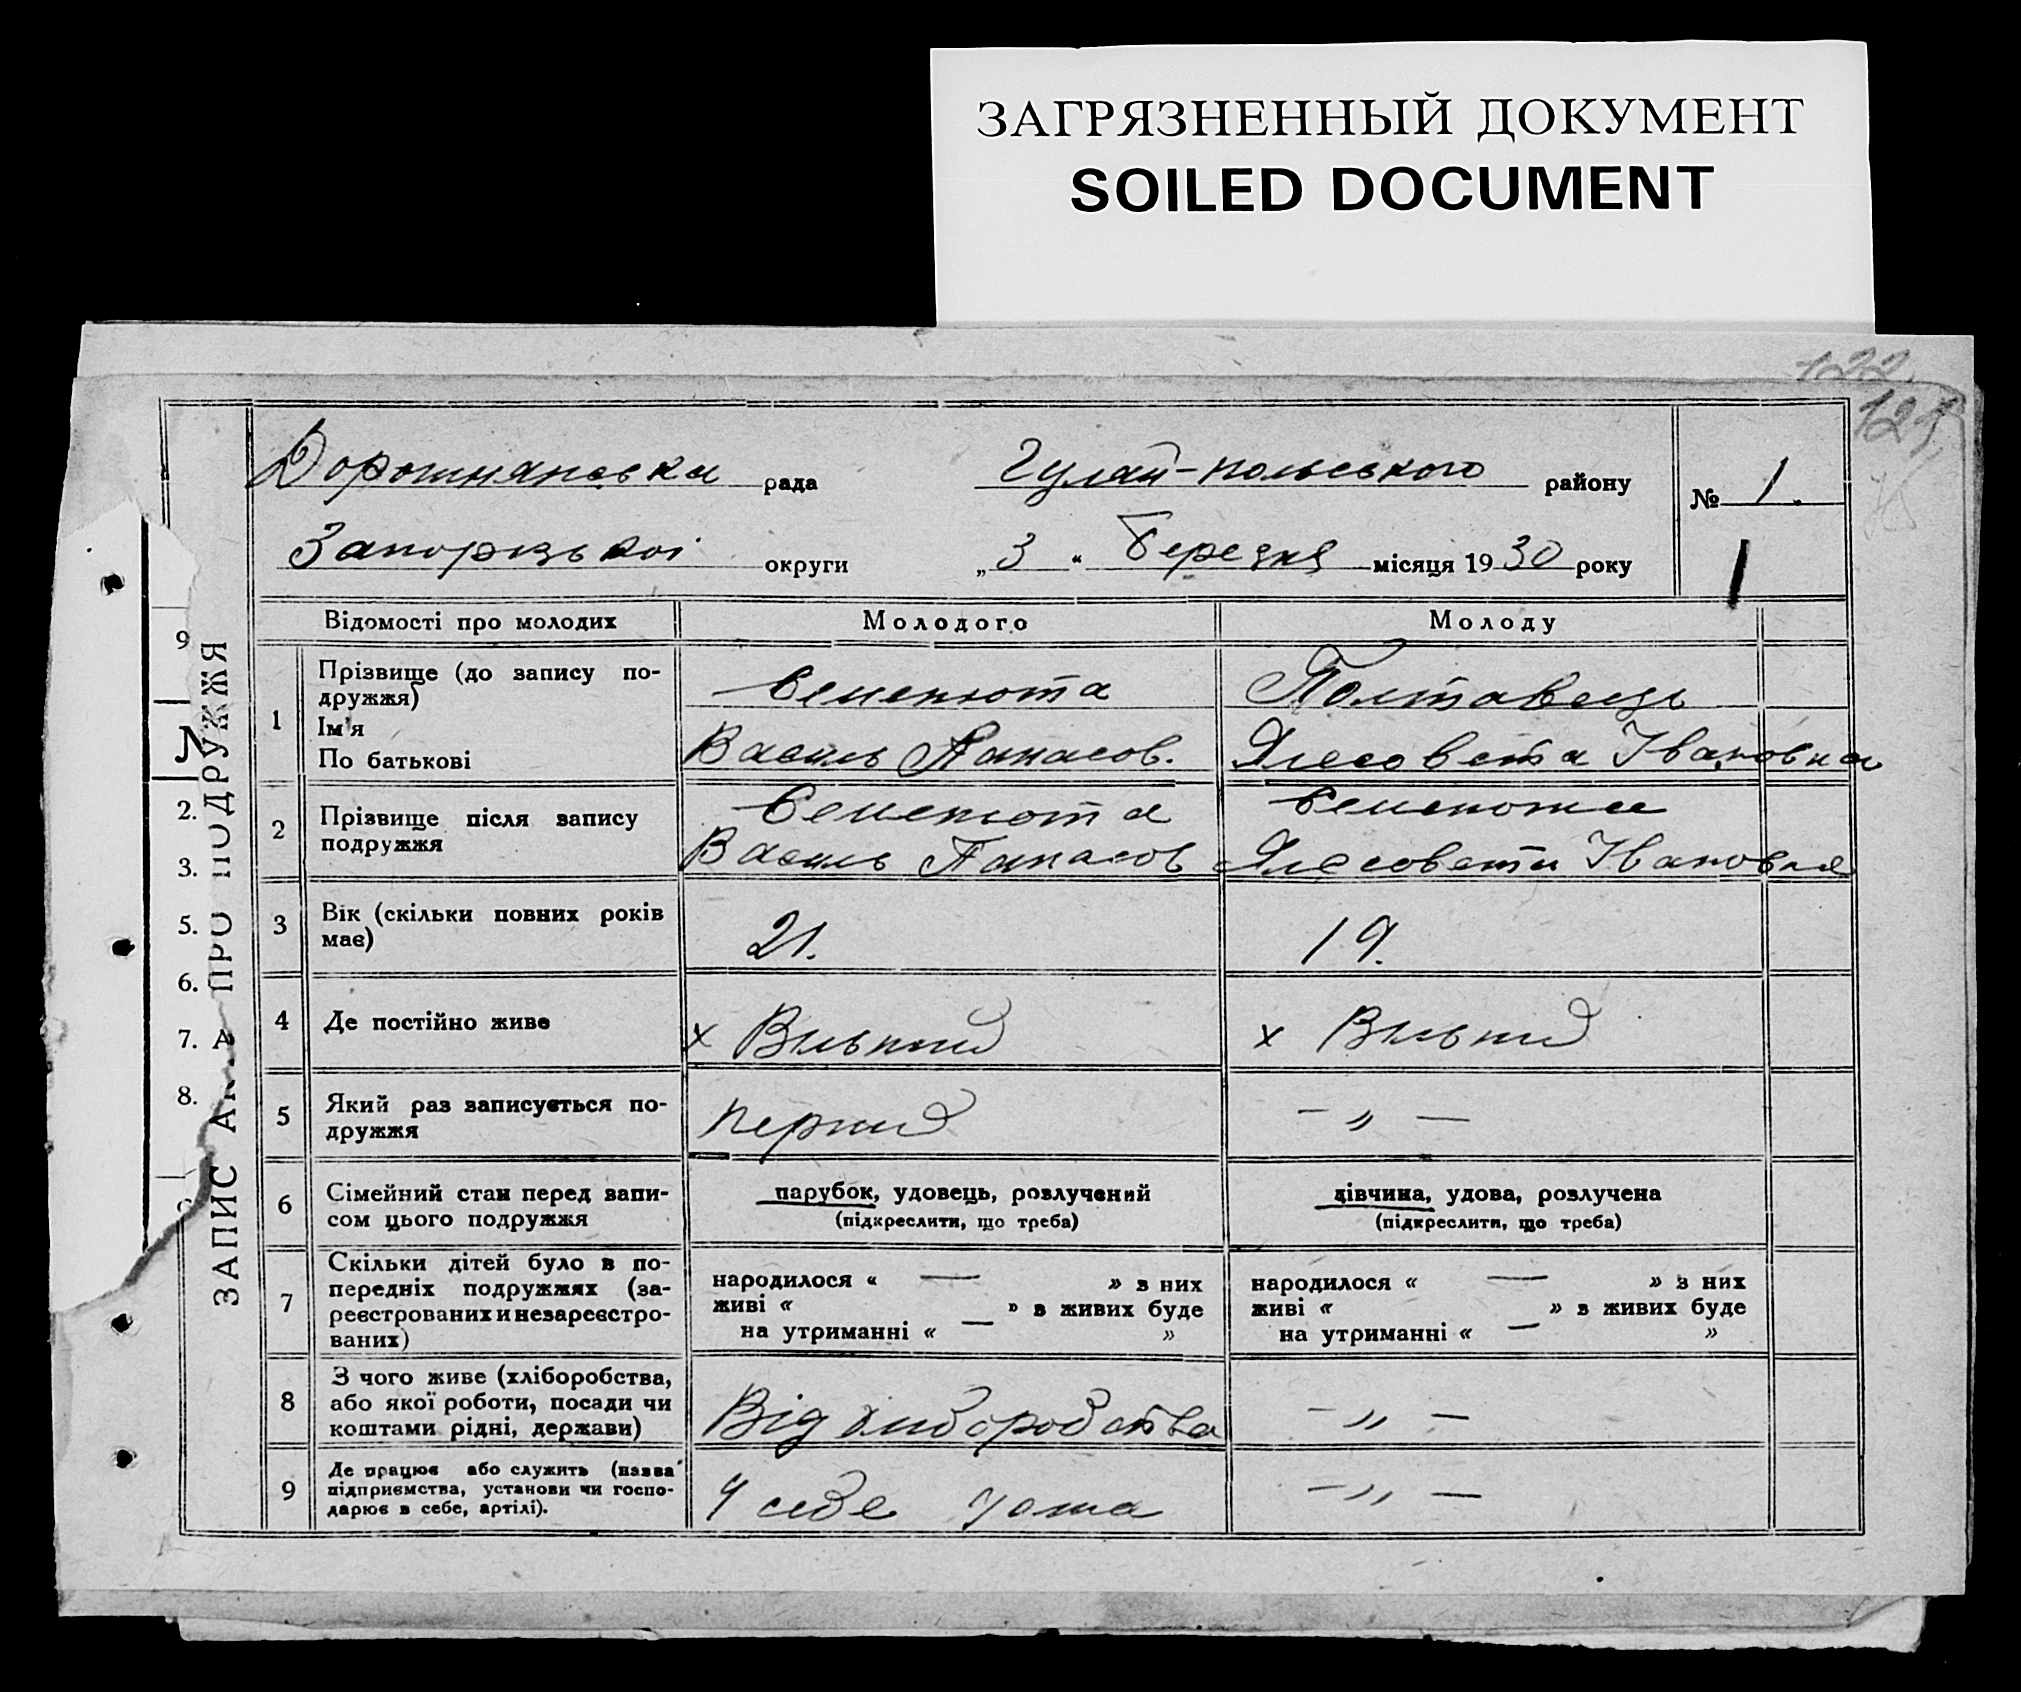 ЗАГРЯЗНЕННЫЙ ДОКУМЕНТ
SOILED DOCUMENT
122
121
Дорожнянська рада Гуляй-польського району № 1.
Запорізькоі округи „3“ Березня місяця 1930 року
1
ЗАПИС АК ПРО ПОДРУЖЖЯ
9
2.
3.
5.
6.
7. А
8.
Відомості про молодих Молодого Молоду
1 Прізвище (до запису по-
дружжя)
Ім'я
По батькові
Семенюта Полтавець
Василь Панасов. Ялесовета Івановна
2 Прізвище після запису
подружжя
Семенюта Семенюта
Василь Панасов Ялесовета Івановна
3 Вік (скільки повних років
має)
21. 19.
4 Де постійно живе х Вильний х Вильний
5 Який раз записується по-
дружжя
перший — „ —
6 Сімейний стан перед запи-
сом цього подружжя
парубок, удовець, розлучений
(підкреслити, що треба)
дівчина, удова, розлучена
(підкреслити, що треба)
7 Скільки дітей було в по-
передніх подружжях (за-
реєстрованих и незареєстро-
ваних)
народилося « — » з них
живі « » в живих буде
на утриманні « — »
народилося « — » з них
живі « » в живих буде
на утриманні « — »
8 З чого живе (хліборобства,
або якої роботи, посади чи
коштами рідні, держави)
Від хлиборобства — „ —
9 Де працює або служить (назва
підприємства, установи чи госпо-
дарює в себе, артілі).
У себе дома — „ —